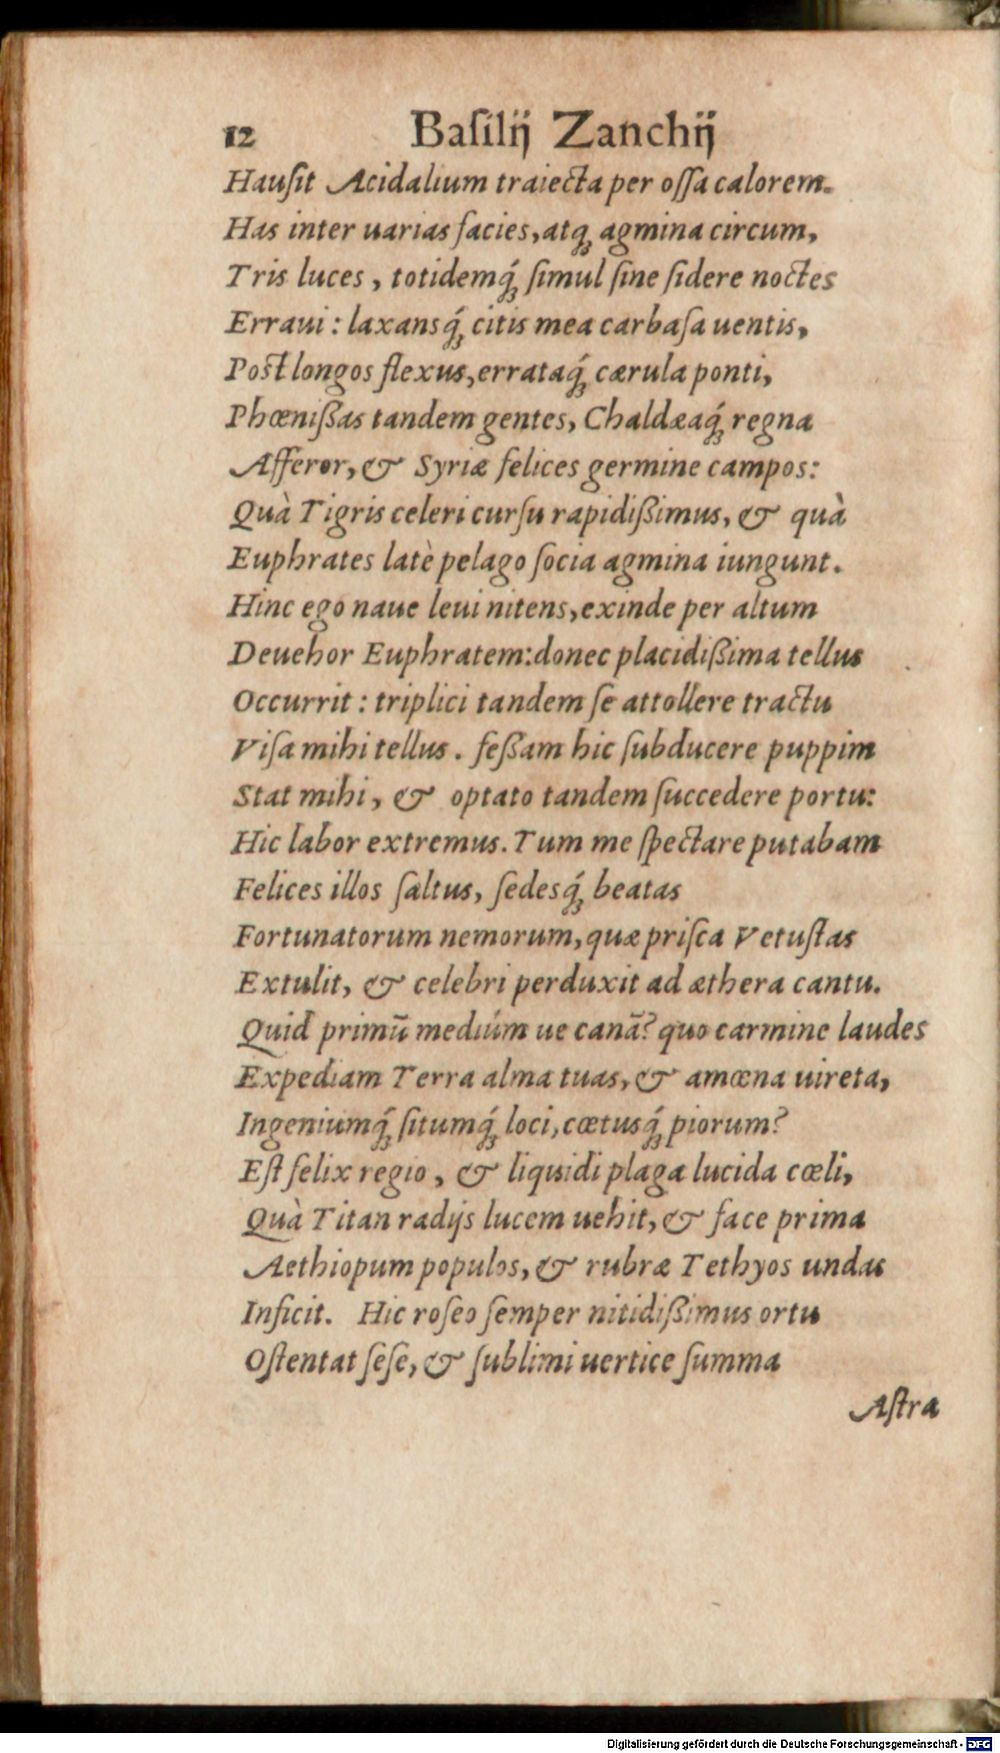 12 Baſilij Zanchij
Hauſit Acidalium traiecta per oſſa calorem.
Has inter uarias facies, atq; agmina circum,
Tris luces, totidemq́; ſimul ſine ſidere noctes
Erraui: laxansq́; citis mea carbaſa uentis,
Poſt longos flexus, errataq́; cærula ponti,
Phœnißas tandem gentes, Chaldæaq́; regna
Afferor, & Syriæ felices germine campos:
Quà Tigris celeri curſu rapidißimus, & quà
Euphrates latè pelago ſocia agmina iungunt.
Hinc ego naue leui nitens, exinde per altum
Deuehor Euphratem: donec placidißima tellus
Occurrit: triplici tandem ſe attollere tractu
Viſa mihi tellus. feßam hic ſubducere puppim
Stat mihi, & optato tandem ſuccedere portu:
Hic labor extremus. Tum me ſpectare putabam
Felices illos ſaltus, ſedesq́; beatas
Fortunatorum nemorum, quæ priſca Vetuſtas
Extulit, & celebri perduxit ad æthera cantu.
Quid primū mediúm ue canā? quo carmine laudes
Expediam Terra alma tuas, & amœna uireta,
Ingeniumq́; ſitumq́; loci, cœtusq́; piorum?
Eſt felix regio, & liquidi plaga lucida cœli,
Quà Titan radijs lucem uehit, & face prima
Aethiopum populos, & rubræ Tethyos undas
Inficit. Hic roſeo ſemper nitidißimus ortu
Oſtentat ſeſe, & ſublimi uertice ſumma
Aſtra
Digitalisierung gefördert durch die Deutsche Forschungsgemeinschaft - DFG